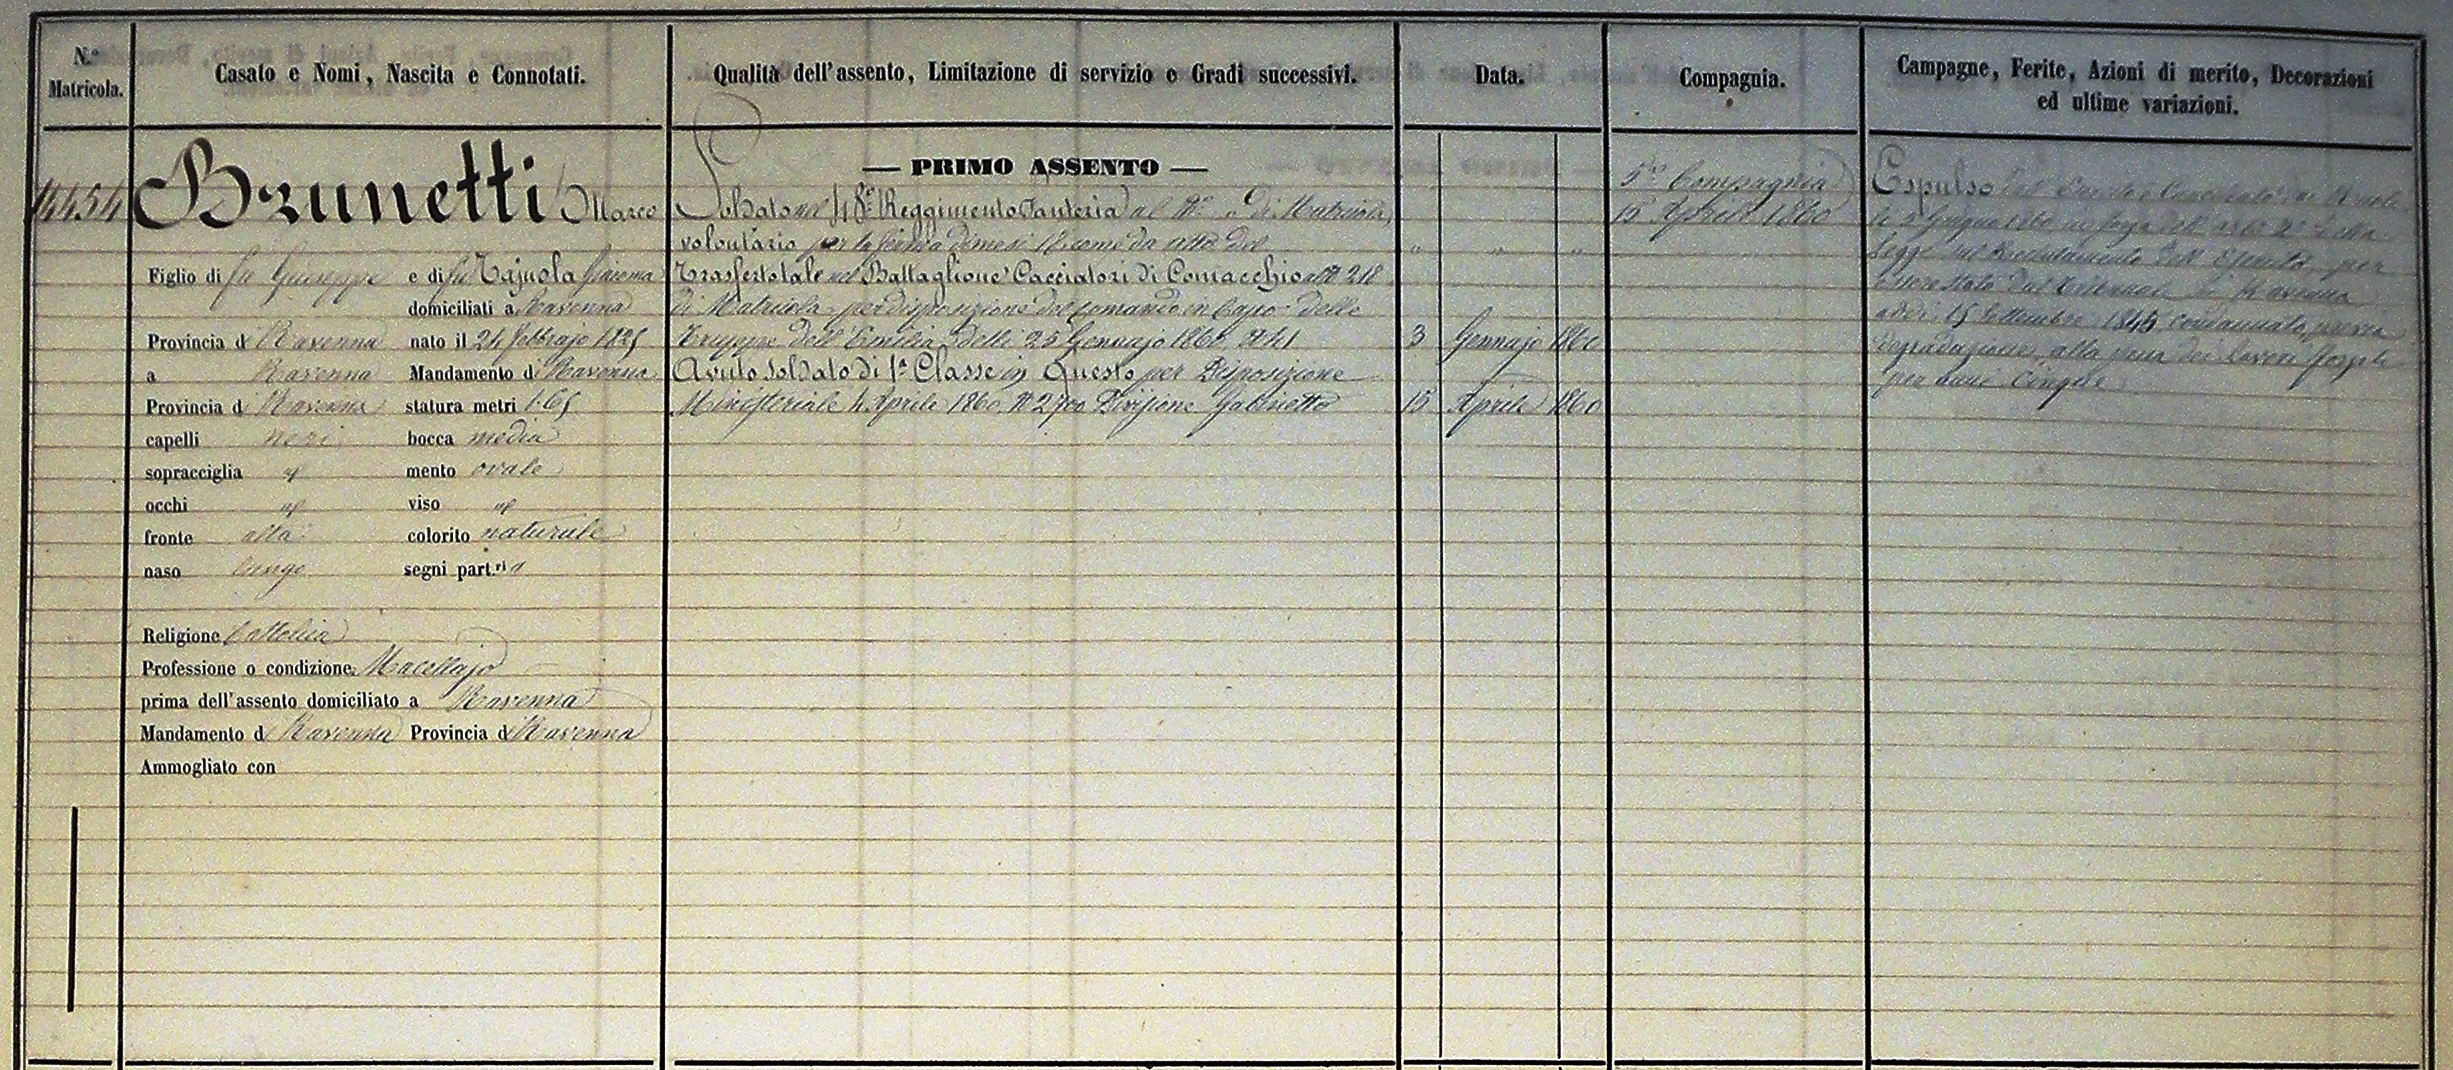 N.º Matricola.
Casato e Nomi, Nascita e Connotati.
Qualità dell'assento, Limitazione di servizio e Gradi successivi.
Data.
Compagnia.
Campagne, Ferite, Azioni di merito, Decorazioni
ed ultime variazioni.
14454
Brunetti Marco
Figlio di fu Giuseppe e di fu Tajuola Giacoma
domiciliati a Ravenna
Provincia d Ravenna nato il 24 febbrajo 1825
a Ravenna Mandamento di Ravenna
Provincia d Ravenna statura metri 1.65
capelli neri bocca media
sopracciglia " mento ovale
occhi " viso "
fronte alta colorito naturale
naso lungo segni part.ri "
Religione Cattolica
Professione o condizione Macellajo
prima dell'assento domiciliato a Ravenna
Mandamento d Ravenna Provincia d Ravenna
Ammogliato con
— PRIMO ASSENTO —
Soldato nel 48º Reggimento Fanteria al Nº " di Matricola,
volontario per la ferma di mesi 18 come da atto del " " "
Trasferto tale nel Battaglione Cacciatori di Comacchio al Nº 218
di Matricola per disposizione del Comando in Capo delle
Truppe dell'Emilia delli 25 Gennajo 1860 Nº 41 3 Gennajo 1860
Avuto Soldato di 1ª Classe in Questo per Disposizione
Ministeriale 4 Aprile 1860 Nº 2700 Divisione Gabinetto 15 Aprile 1860
5ª Compagnia
15 Aprile 1860
Espulso dal Corpo e Cancellato dai Ruoli
li 5 Giugno 1860 in forza dell'art. 2º della
Legge sul Reclutamento dell'Esercito per
essere stato dal Tribunale di Ravenna
addì 15 Settembre 1845 condannato, previa
degradazione, alla pena dei lavori forzati
per anni Cinque